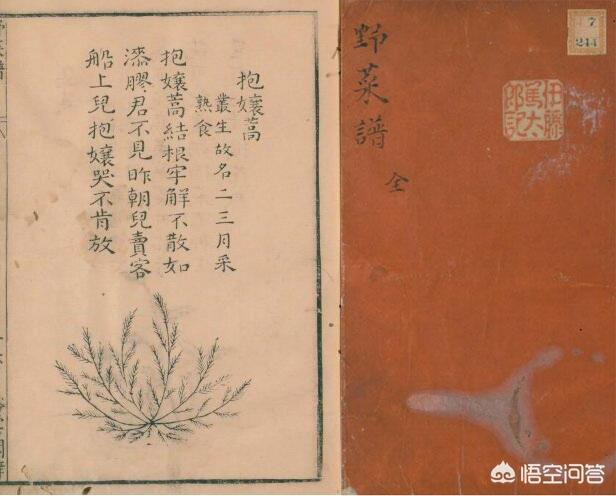 野菜譜
全
特7
244
伊藤
篤太
郎記
抱孃蒿
叢生故名二三月采
熟食
抱孃蒿結根牢解不散如
漆膠君不見昨朝兒賣客
船上兒抱孃哭不肯放
悟空问答